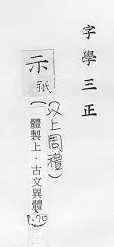 字學三正
示
祇
(以上周禮)
體製上·古文異體